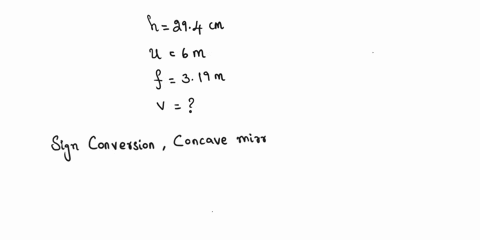 h = 29.4 cm
u = 6 m
f = 3.19 m
v = ?
Sign Conversion, Concave mirr